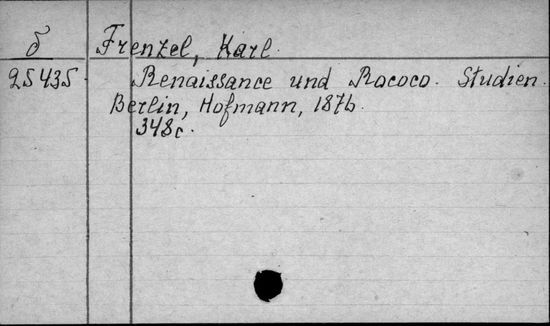 δ Frenzel, Karl.
25435. Renaissance und Rococo. Studien.
Berlin, Hofmann, 1876.
348c.